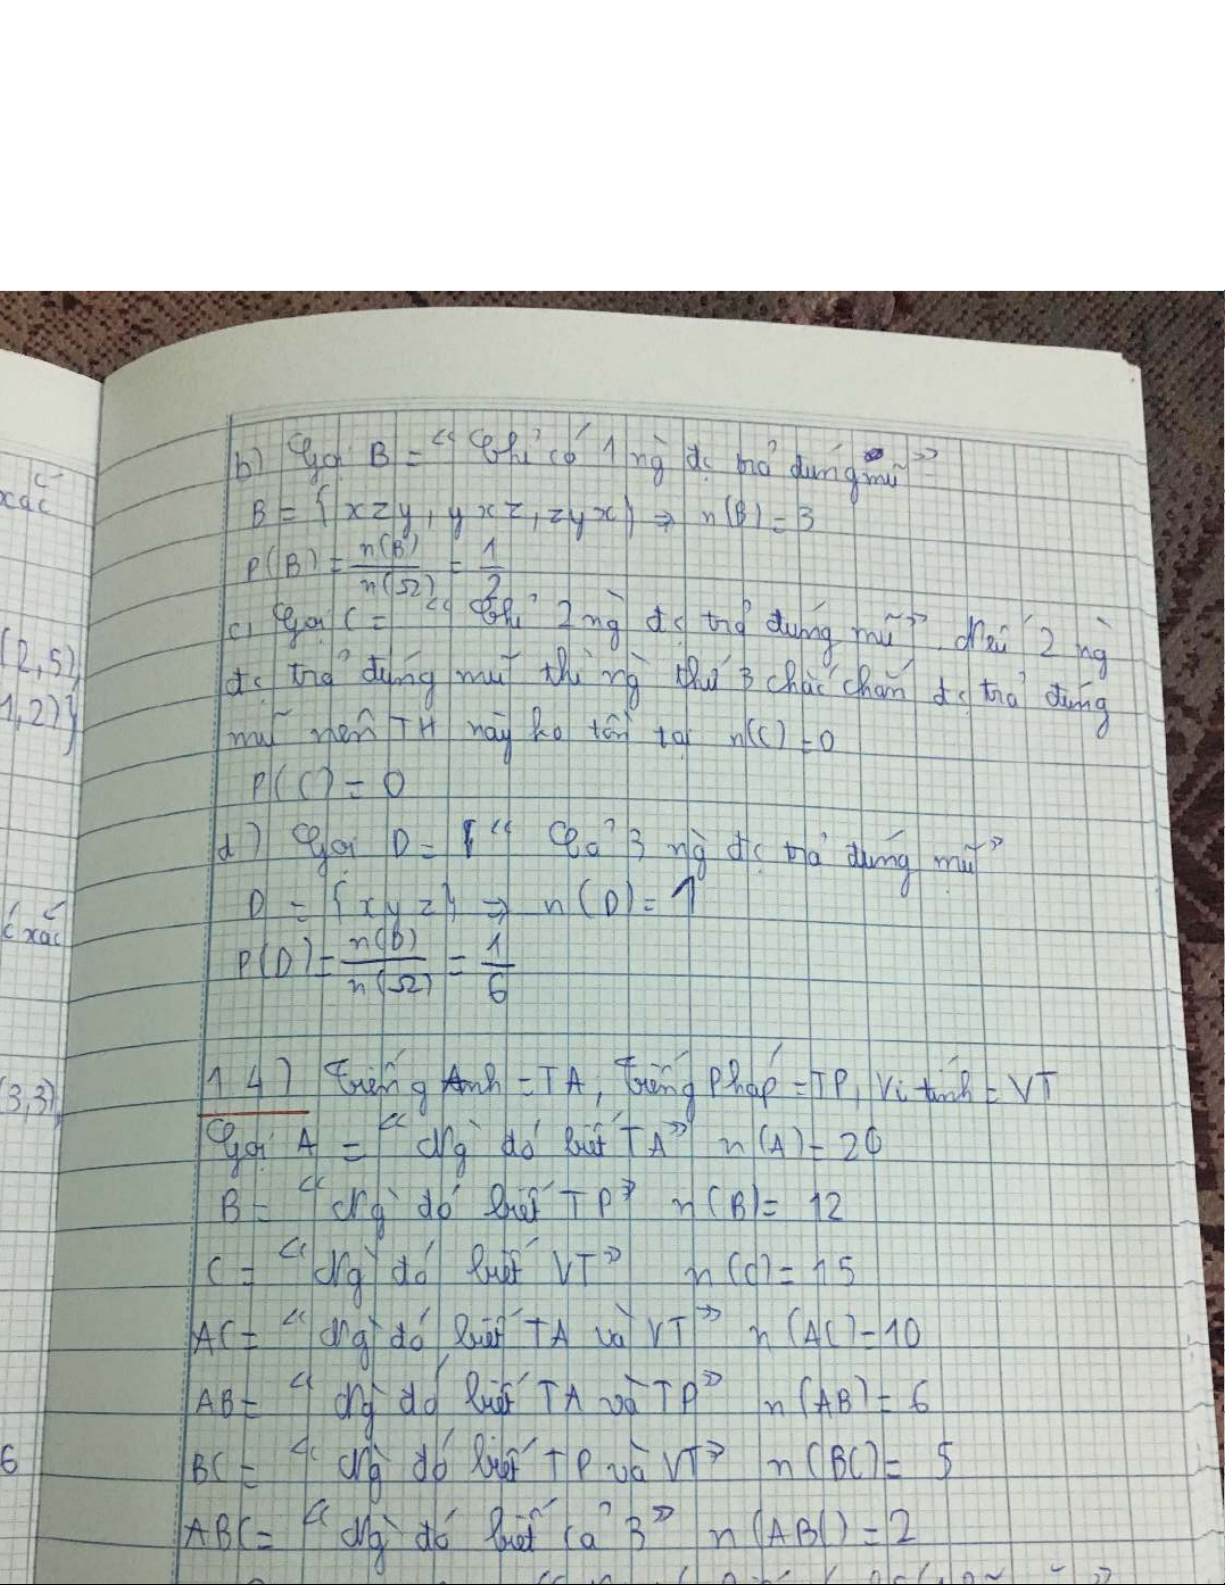 xác
(2,5),
1,2)}
xác
(3,3),
6
b) Gọi B = "Chỉ có 1 ng đc trả đúng mũ"
B = {xzy, yxz, zyx} ⇒ n(B) = 3
P(B) = n(B)/n(Ω) = 1/2
c, Gọi C = "Chỉ 2 ng đc trả đúng mũ". Nếu 2 ng
đc trả đúng mũ thì ng thứ 3 chắc chắn đc trả đúng
mũ nên TH này ko tồn tại n(C) = 0
P(C) = 0
d) Gọi D = "Cả 3 ng đc trả đúng mũ"
D = {xyz} ⇒ n(D) = 1
P(D) = n(D)/n(Ω) = 1/6
1.4) Tiếng Anh = TA, Tiếng Pháp = TP, Vi tính = VT
Gọi A = "Ng đó biết TA" n(A) = 20
B = "Ng đó biết TP" n(B) = 12
C = "Ng đó biết VT" n(C) = 15
AC = "Ng đó biết TA và VT" n(AC) = 10
AB = "Ng đó biết TA và TP" n(AB) = 6
BC = "Ng đó biết TP và VT" n(BC) = 5
ABC = "Ng đó biết cả 3" n(ABC) = 2